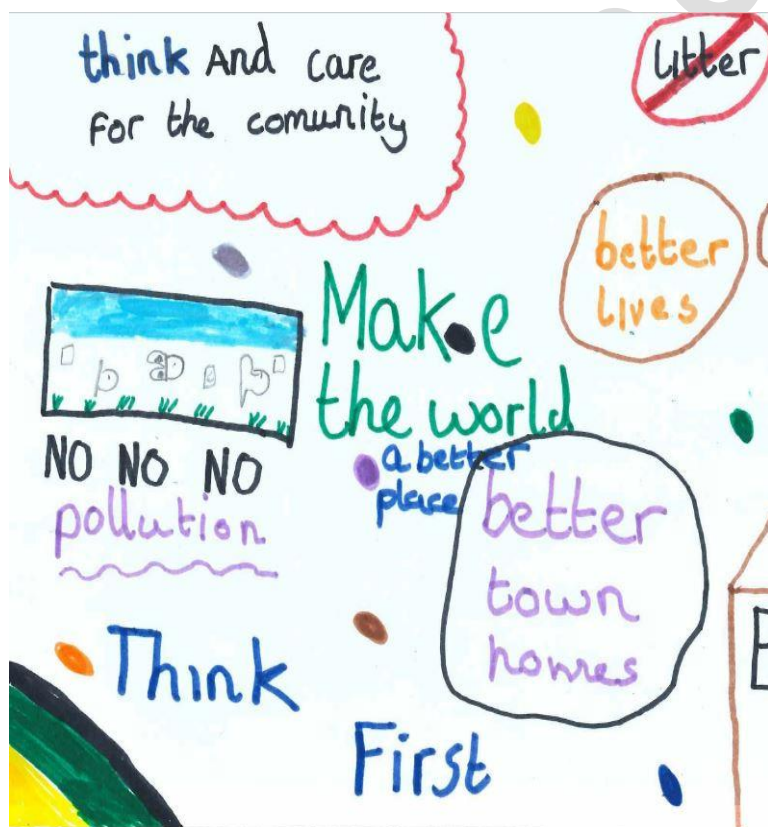 think And care
For the comunity
litter
better
lives
Make
the world
a better
place
NO NO NO
pollution
better
town
homes
Think
First